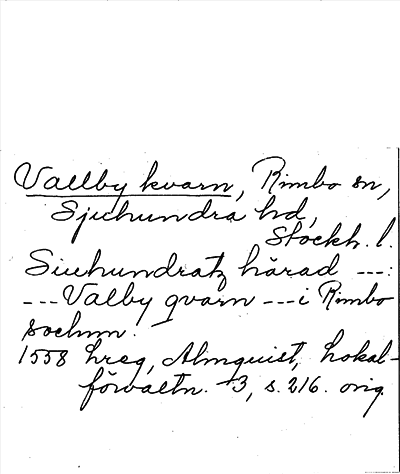 Vallby kvarn, Rimbo sn,
Sjuhundra hd,
Stockh. l.
Siuhundratz härad ---:
---Valby qvarn --- i Rimbo
sochnn.
1558 hreg, Almquist, Lokal-
förvaltn. 3, s. 216. orig.